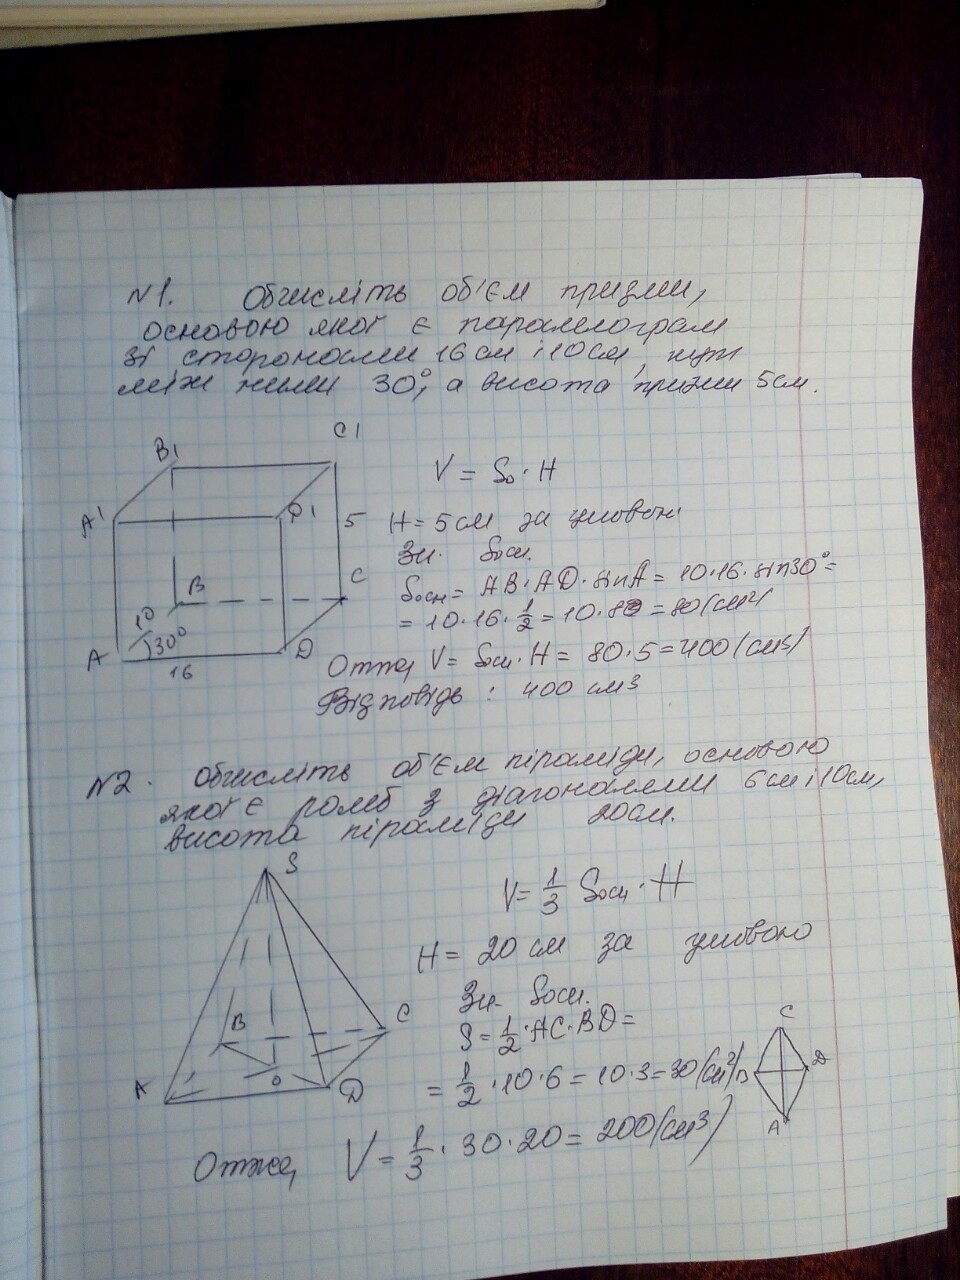 N1. Обчисліть об'єм призми,
основою якої є паралелограм
зі сторонами 16 см і 10 см, кут
між ними 30°, а висота призми 5 см.
B1
C1
A1
D1
5
B
C
10
30°
A
D
16
V = So · H
H = 5 см за умовою
Зн. Sосн.
Sосн = AB · AD · sin A = 10 · 16 · sin 30° =
= 10 · 16 · 1/2 = 10 · 8 = 80 (см²)
Отже, V = Sосн · H = 80 · 5 = 400 (см3)
Відповідь : 400 см3
N2. Обчисліть об'єм піраміди, основою
якої є ромб з діагоналями 6 см і 10 см,
висота піраміди 20 см.
S
B
C
A
O
D
V = 1/3 Sосн · H
H = 20 см за умовою
Зн. Sосн.
S = 1/2 · AC · BD =
= 1/2 · 10 · 6 = 10 · 3 = 30 (см²)
C
B
D
A
Отже, V = 1/3 · 30 · 20 = 200 (см3)